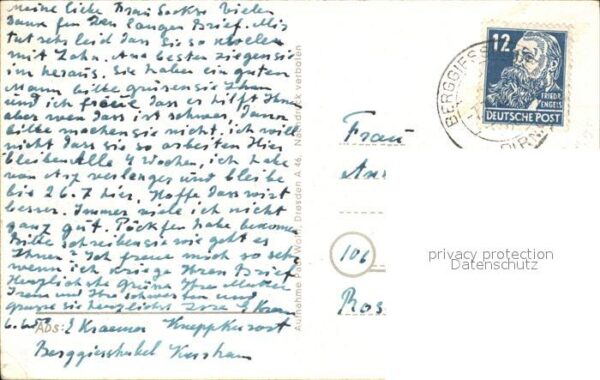 Meine liebe Frau Socks Vielen
Dank für den langen Brief. Mir
tut sehr leid dass Sie so
mit Zahn. Am besten ziegen sie
im heraus. Sie haben ein guten
Mann bitte grüsen sie Ihn
und ich freue dass er hilft Ihnen
aber wen dass ist schwer, dann
bitte machen sie nicht, ich will
nicht dass sie so arbeiten Hier
bleiben Alle 4 Wochen, ich habe
von Arz verlangen und bleibe
bis 26.7 hier. Hoffe dass wirt
besser. Immer ich nicht
ganz gut. habe bekommen
Bitte schreiben sie wie geht es
Ihnen? Ich freue mich so sehr
wenn ich kriege Ihren Brief
Herzlichste Grüse Ihre Mutter
und Ihre schwestern und
grüse sie herzlichst
Abs: E Kraemer Kneppkurort
Berggieshübel Kurhaus
Aufnahme Paul Wolff, Dresden A 46, Nachdruck verboten
Frau
106
Ros
12
FRIEDR.
ENGELS
DEUTSCHE POST
BERGGIESS
privacy protection
Datenschutz